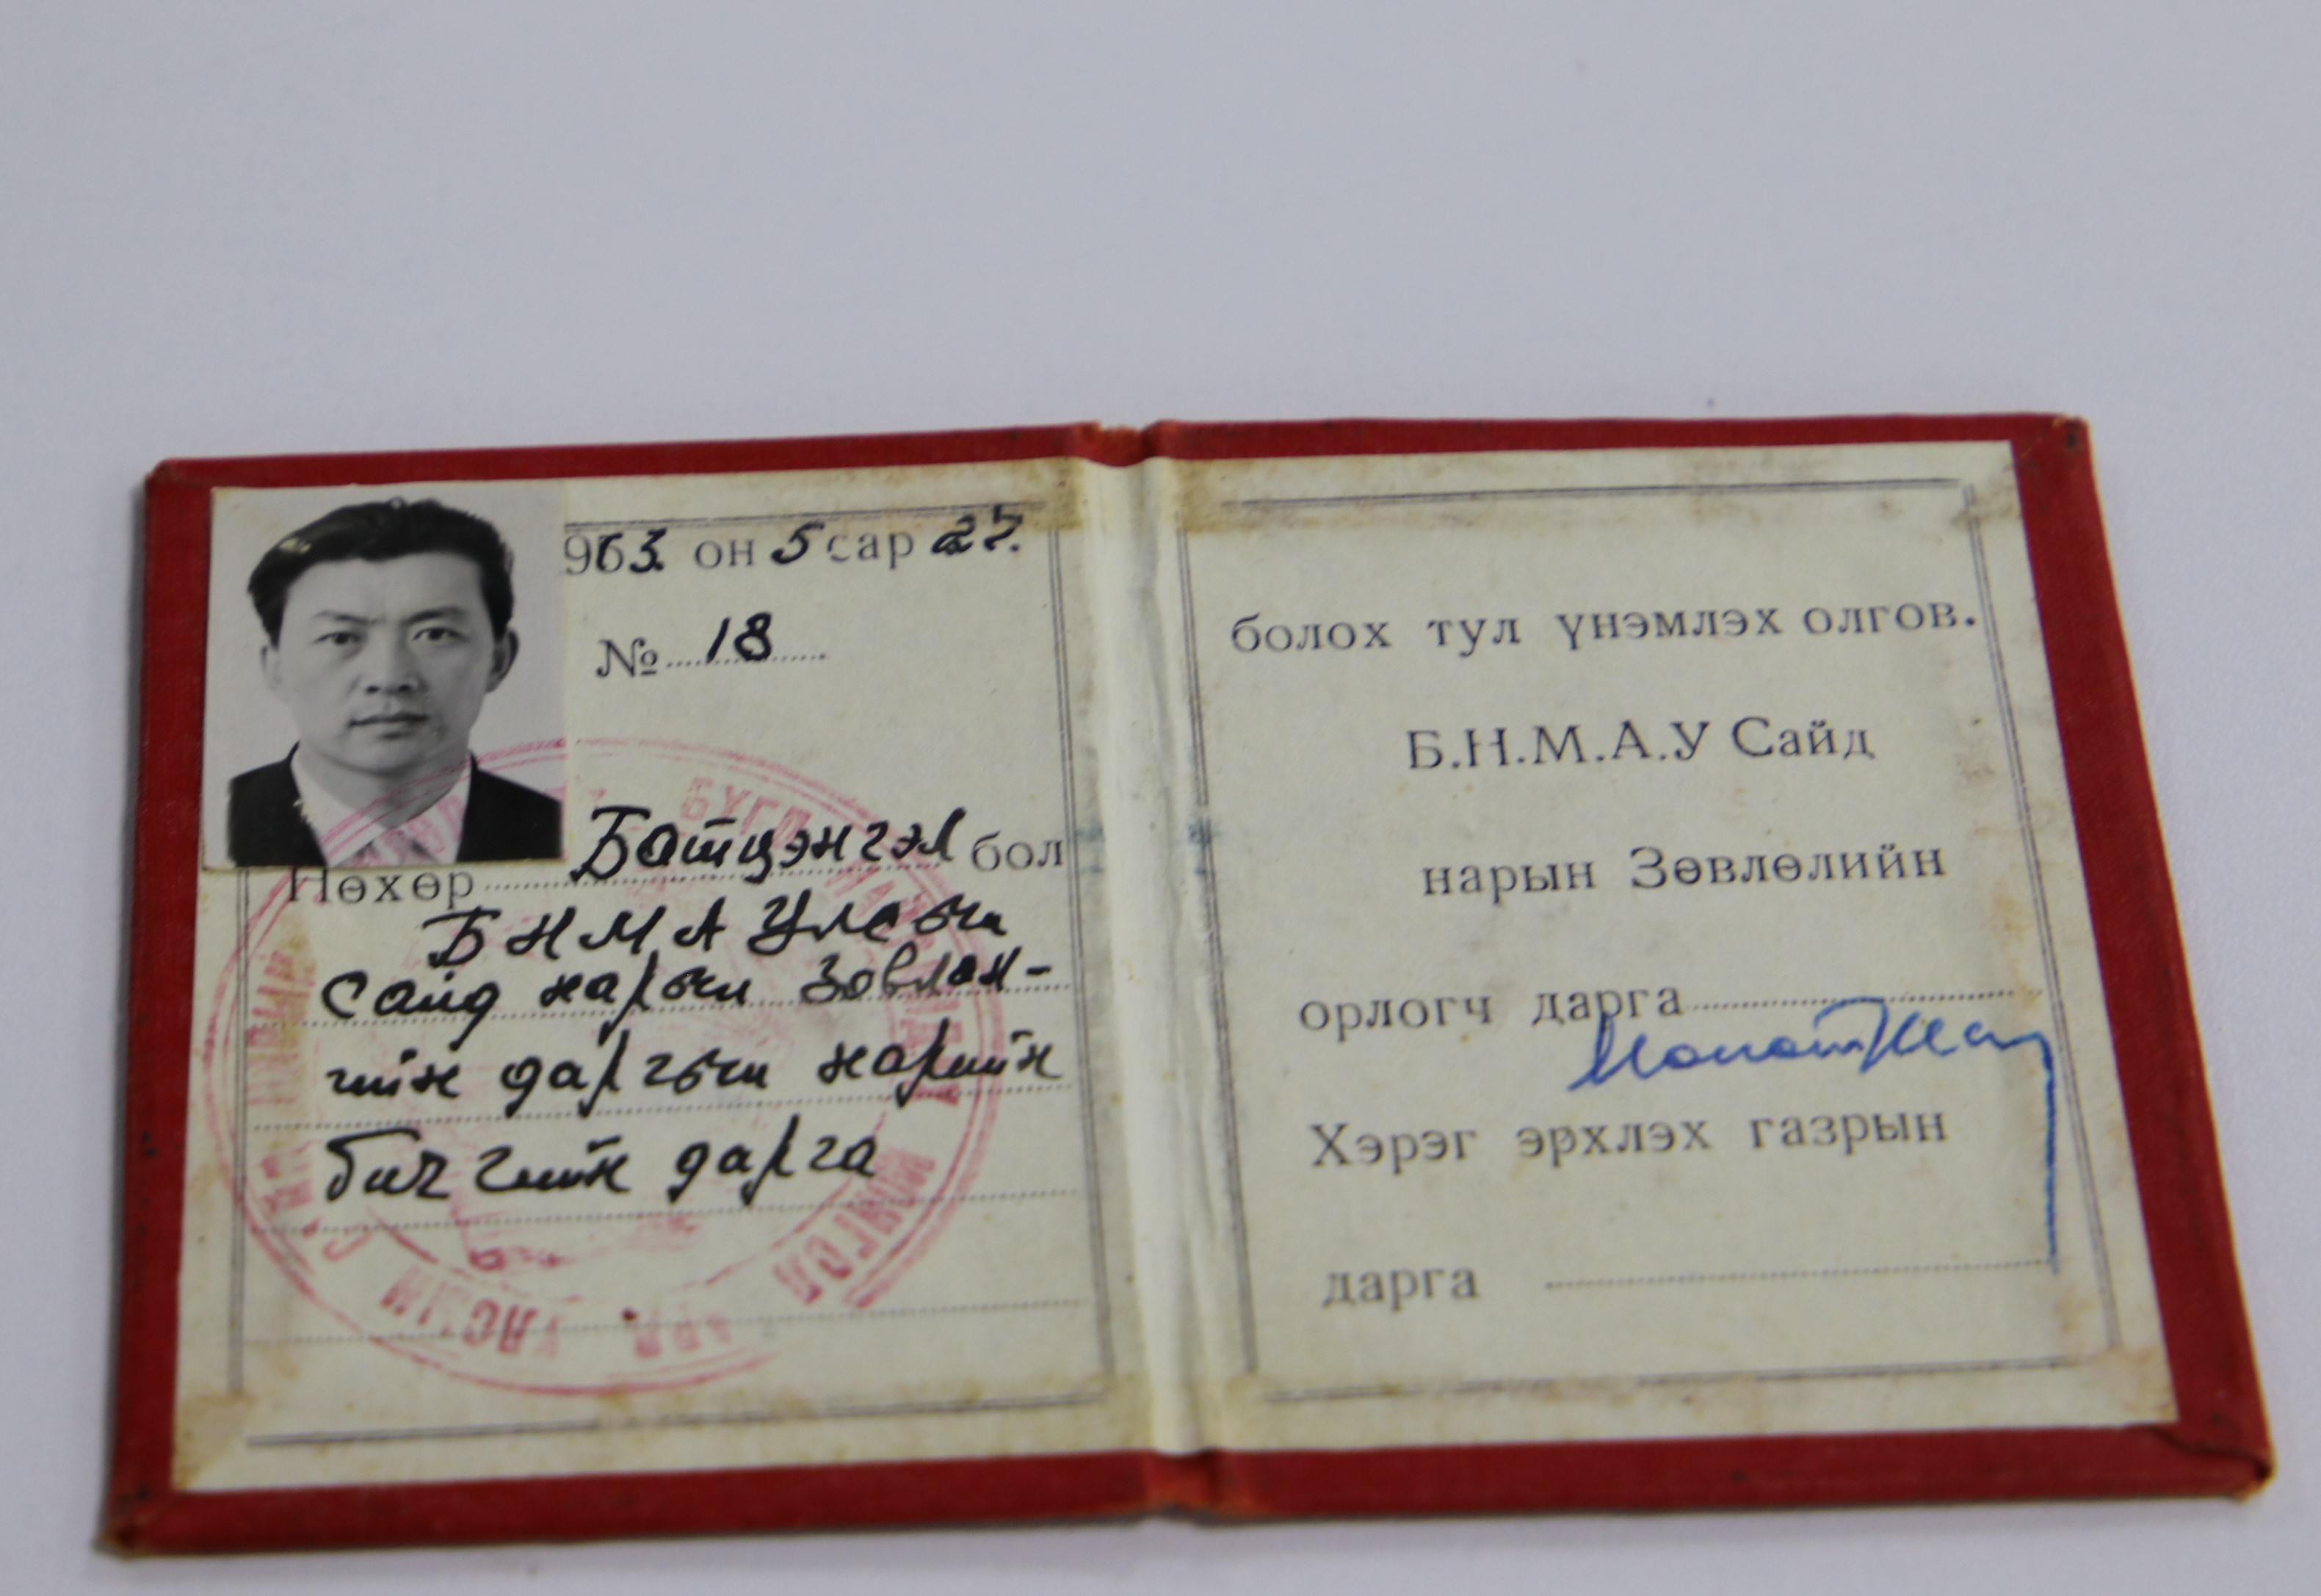 963 он 5 сар 27.
№ 18
Нөхөр Батцэнгэл бол
БНМА Улсын
Сайд нарын Зөвлөл-
ийн даргын нарийн
бичгийн дарга
БҮГД
МОНГОЛ АРД УЛСЫН
болох тул үнэмлэх олгов.
Б.Н.М.А.У Сайд
нарын Зөвлөлийн
орлогч дарга
Хэрэг эрхлэх газрын
дарга